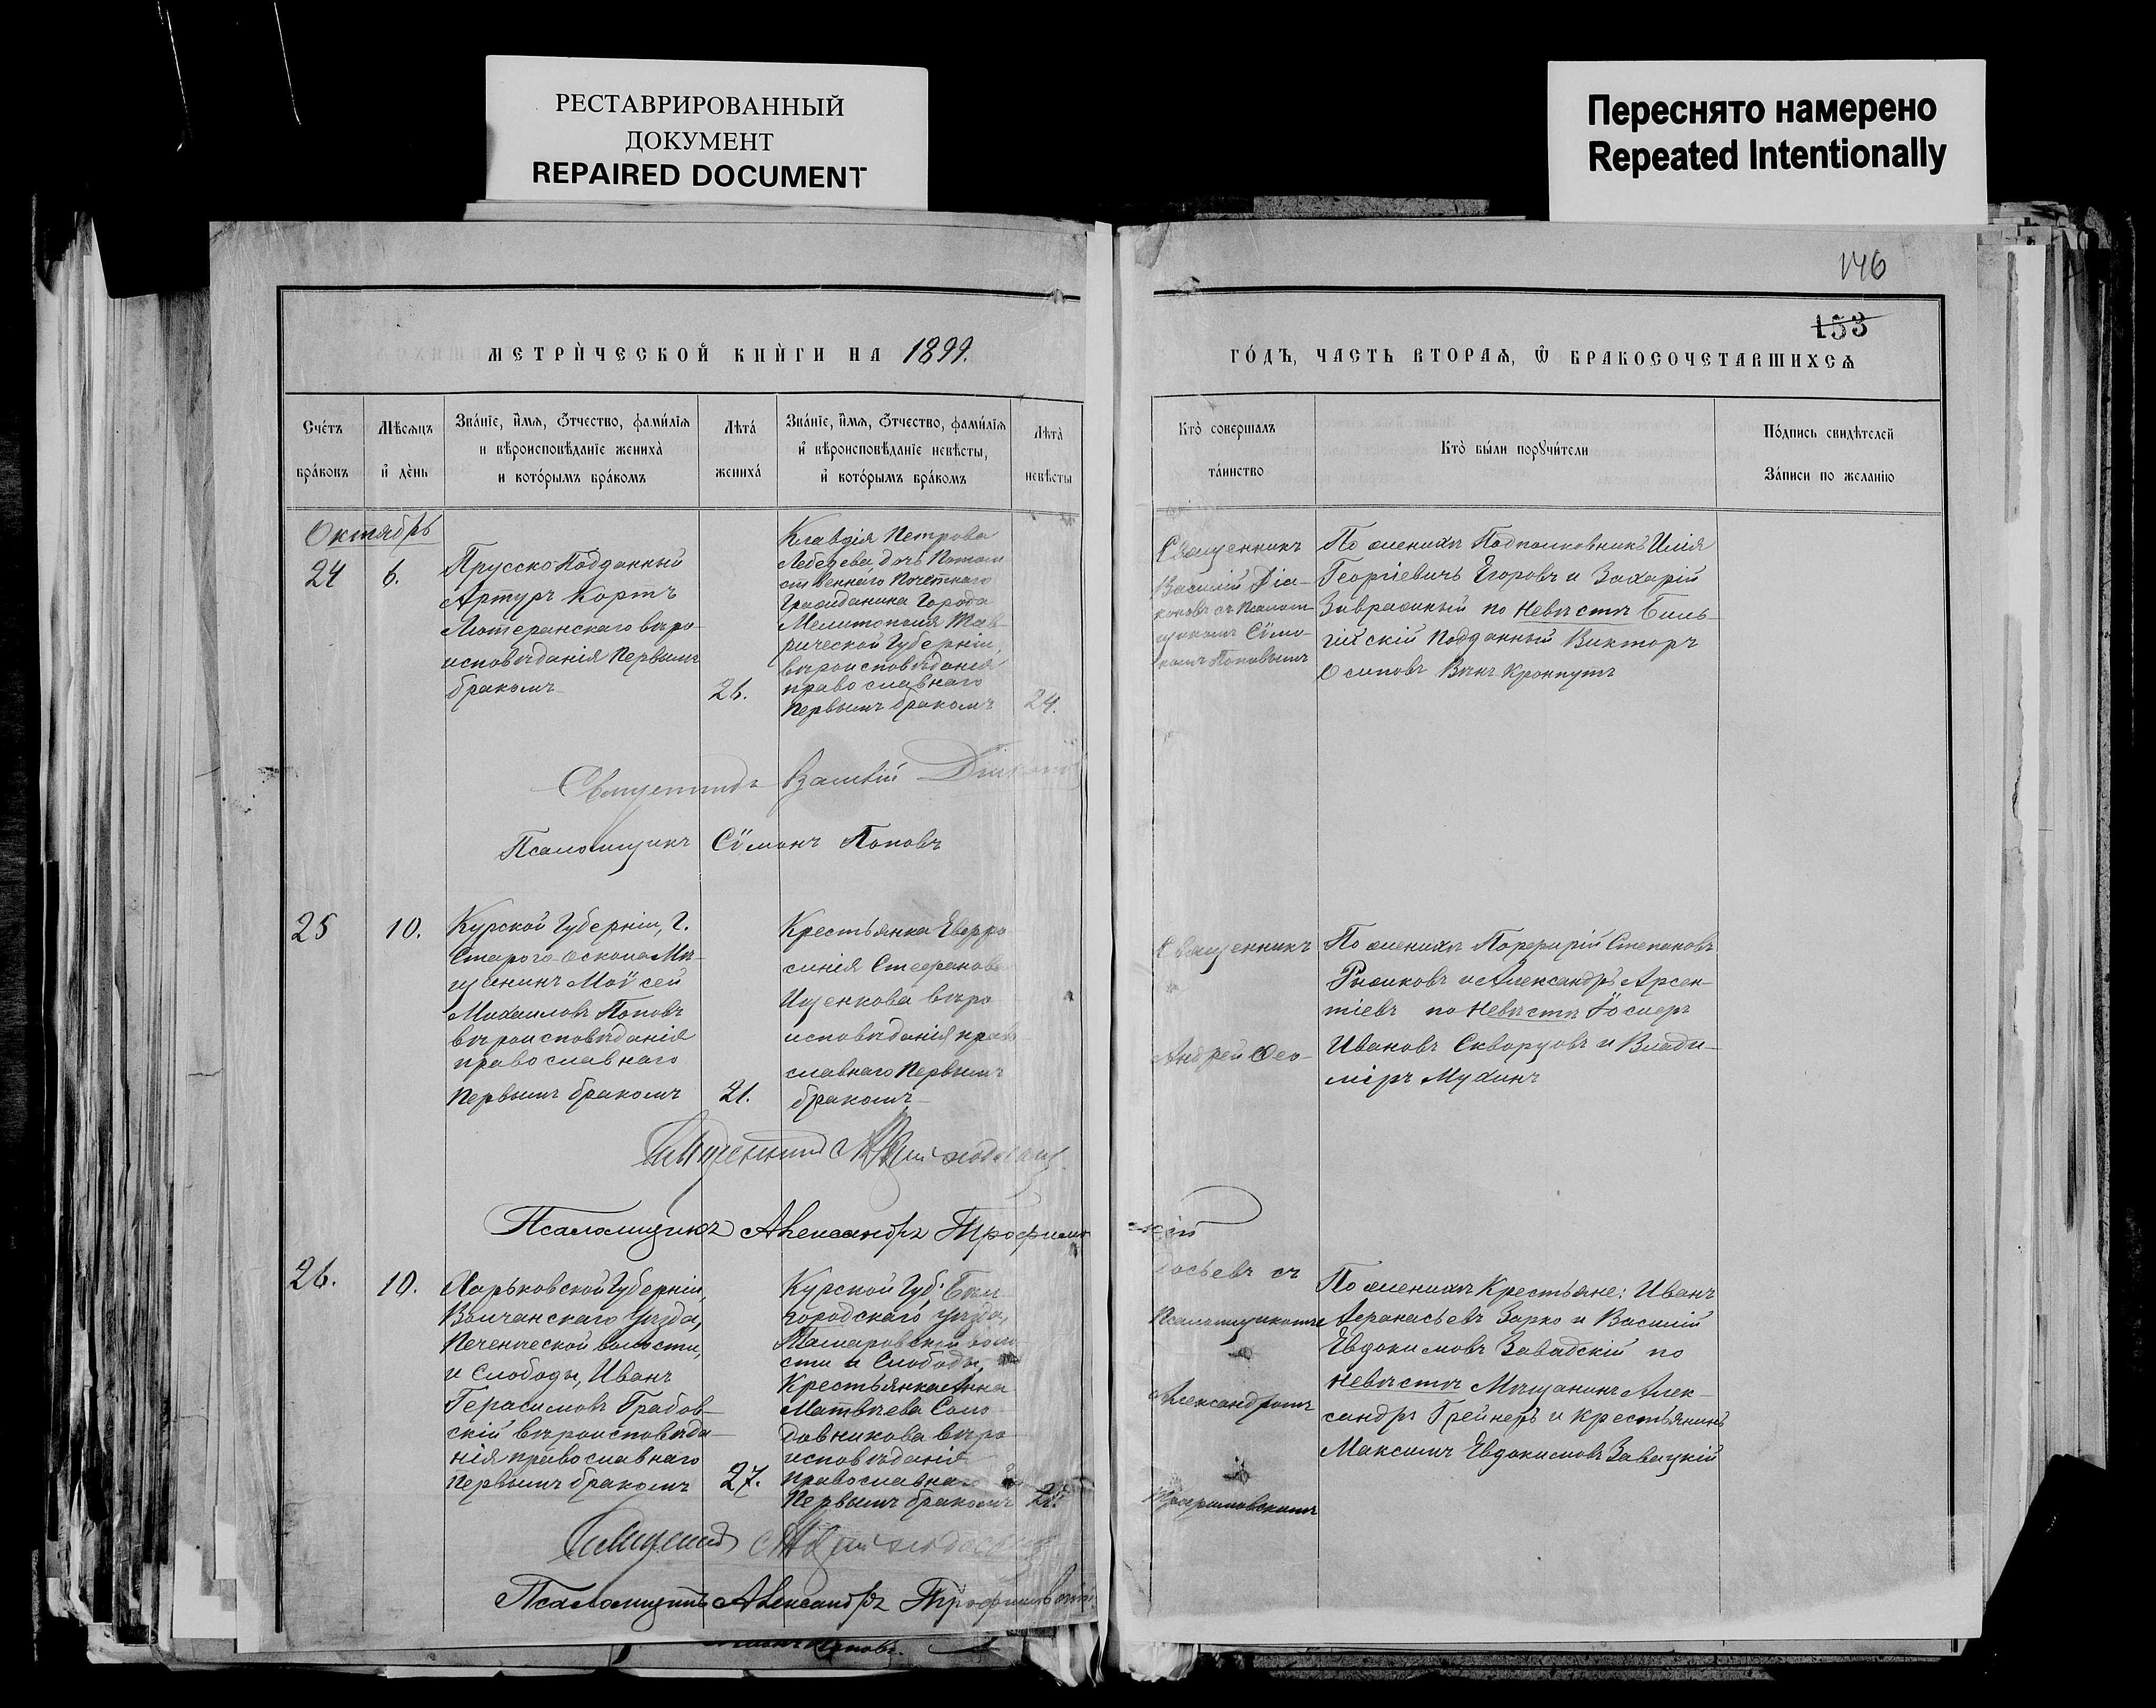 РЕСТАВРИРОВАННЫЙ
ДОКУМЕНТ
REPAIRED DOCUMENT
Переснято намерено
Repeated Intentionally
146
153
МЕТРИ́ЧЕСКОЙ КНИ́ГИ НА 1899.
ГО́ДЪ, ЧАСТЬ ВТОРАѦ, Ѿ БРАКОСОЧЕТАВШИХСѦ
Сче́тъ
бра́ковъ
Мѣсѧцъ
и́ де́нь
Зва́нїе, и́мѧ, ѻ҆́тчество, фами́лїѧ
и вѣроисповѣ́данїе жениха̀
и кото́рымъ бра́комъ
Лѣта́
жениха́
Зва́нїе, и́мѧ, ѻ҆́тчество, фами́лїѧ
и҆ вѣроисповѣ́данїе невѣ́сты,
и҆ кото́рымъ бра́комъ
Лѣта̀
невѣ́сты
Кто̀ соверша́лъ
та́инство
Кто̀ бы́ли порꙋчи́тели
По́дпись свидѣ́телей
За́писи по жела́нїю
Октябрь
24
6.
Прусско-Подданный
Артуръ Кортъ
Лютеранскаго вѣро-
исповѣданія Первымъ
бракомъ
26.
Клавдія Петрова
Лебедева, дочь Потом
ственнаго Почетнаго
Гражданина Города
Мелитополя Тав-
рической Губерніи,
вѣроисповѣданія
православнаго
Первымъ бракомъ
24.
Священникъ
Василій Діа-
коновъ съ Псалом-
щикомъ Сѵмо-
номъ Поповымъ
По женихѣ Подполковникъ Илія
Георгіевичъ Егоровъ и Захарій
Завражный по Невѣстѣ Бель-
гійскій Подданный Викторъ
Осиповъ Ванъ Кроппутъ
Священникъ Василій Діаконовъ
Псаломщикъ Сѵмонъ Поповъ
25
10.
Курской Губерніи, Г.
Старого-Оскола Мѣ-
щанинъ Моѵсей
Михаиловъ Поповъ
вѣроисповѣданія
православнаго
Первымъ бракомъ
21.
Крестьянка Евфро
синія Стефанова
Ищенкова вѣро
исповѣданія право
славнаго Первымъ
бракомъ
Священникъ
Андрей Ѳео-
По женихѣ Порфирій Степановъ
Рыжковъ и Александръ Арсен-
тіевъ по Невѣстѣ
Ивановъ Скворцовъ и Влади-
міръ Мухинъ
Псаломщикъ Александръ Трофимов
скій
26.
10.
Харьковской Губерніи,
Волчанскаго Уѣзда,
Печенѣжской волости,
и Слободы, Иванъ
Герасимовъ Грабов-
скій вѣроисповѣда-
нія православнаго
Первымъ бракомъ
27.
Курской Губ. Бѣл-
городскаго уѣзда,
воло
сти и Слободы,
Крестьянка Анна
Матвѣева Соло
довникова вѣро
исповѣданія
православнаго
Первымъ бракомъ
досьевъ съ
Псаломщикомъ
Александромъ
Трофимовскимъ
По женихѣ Крестьяне: Иванъ
Аѳанасьевъ Зарко и Василій
Евдокимовъ Завадскій по
невѣстѣ Мѣщанинъ Алек-
сандръ Грейнеръ и Крестьянинъ
Максимъ Евдокимовъ Завацкій
Священникъ
Псаломщикъ Александръ Трофимовскій